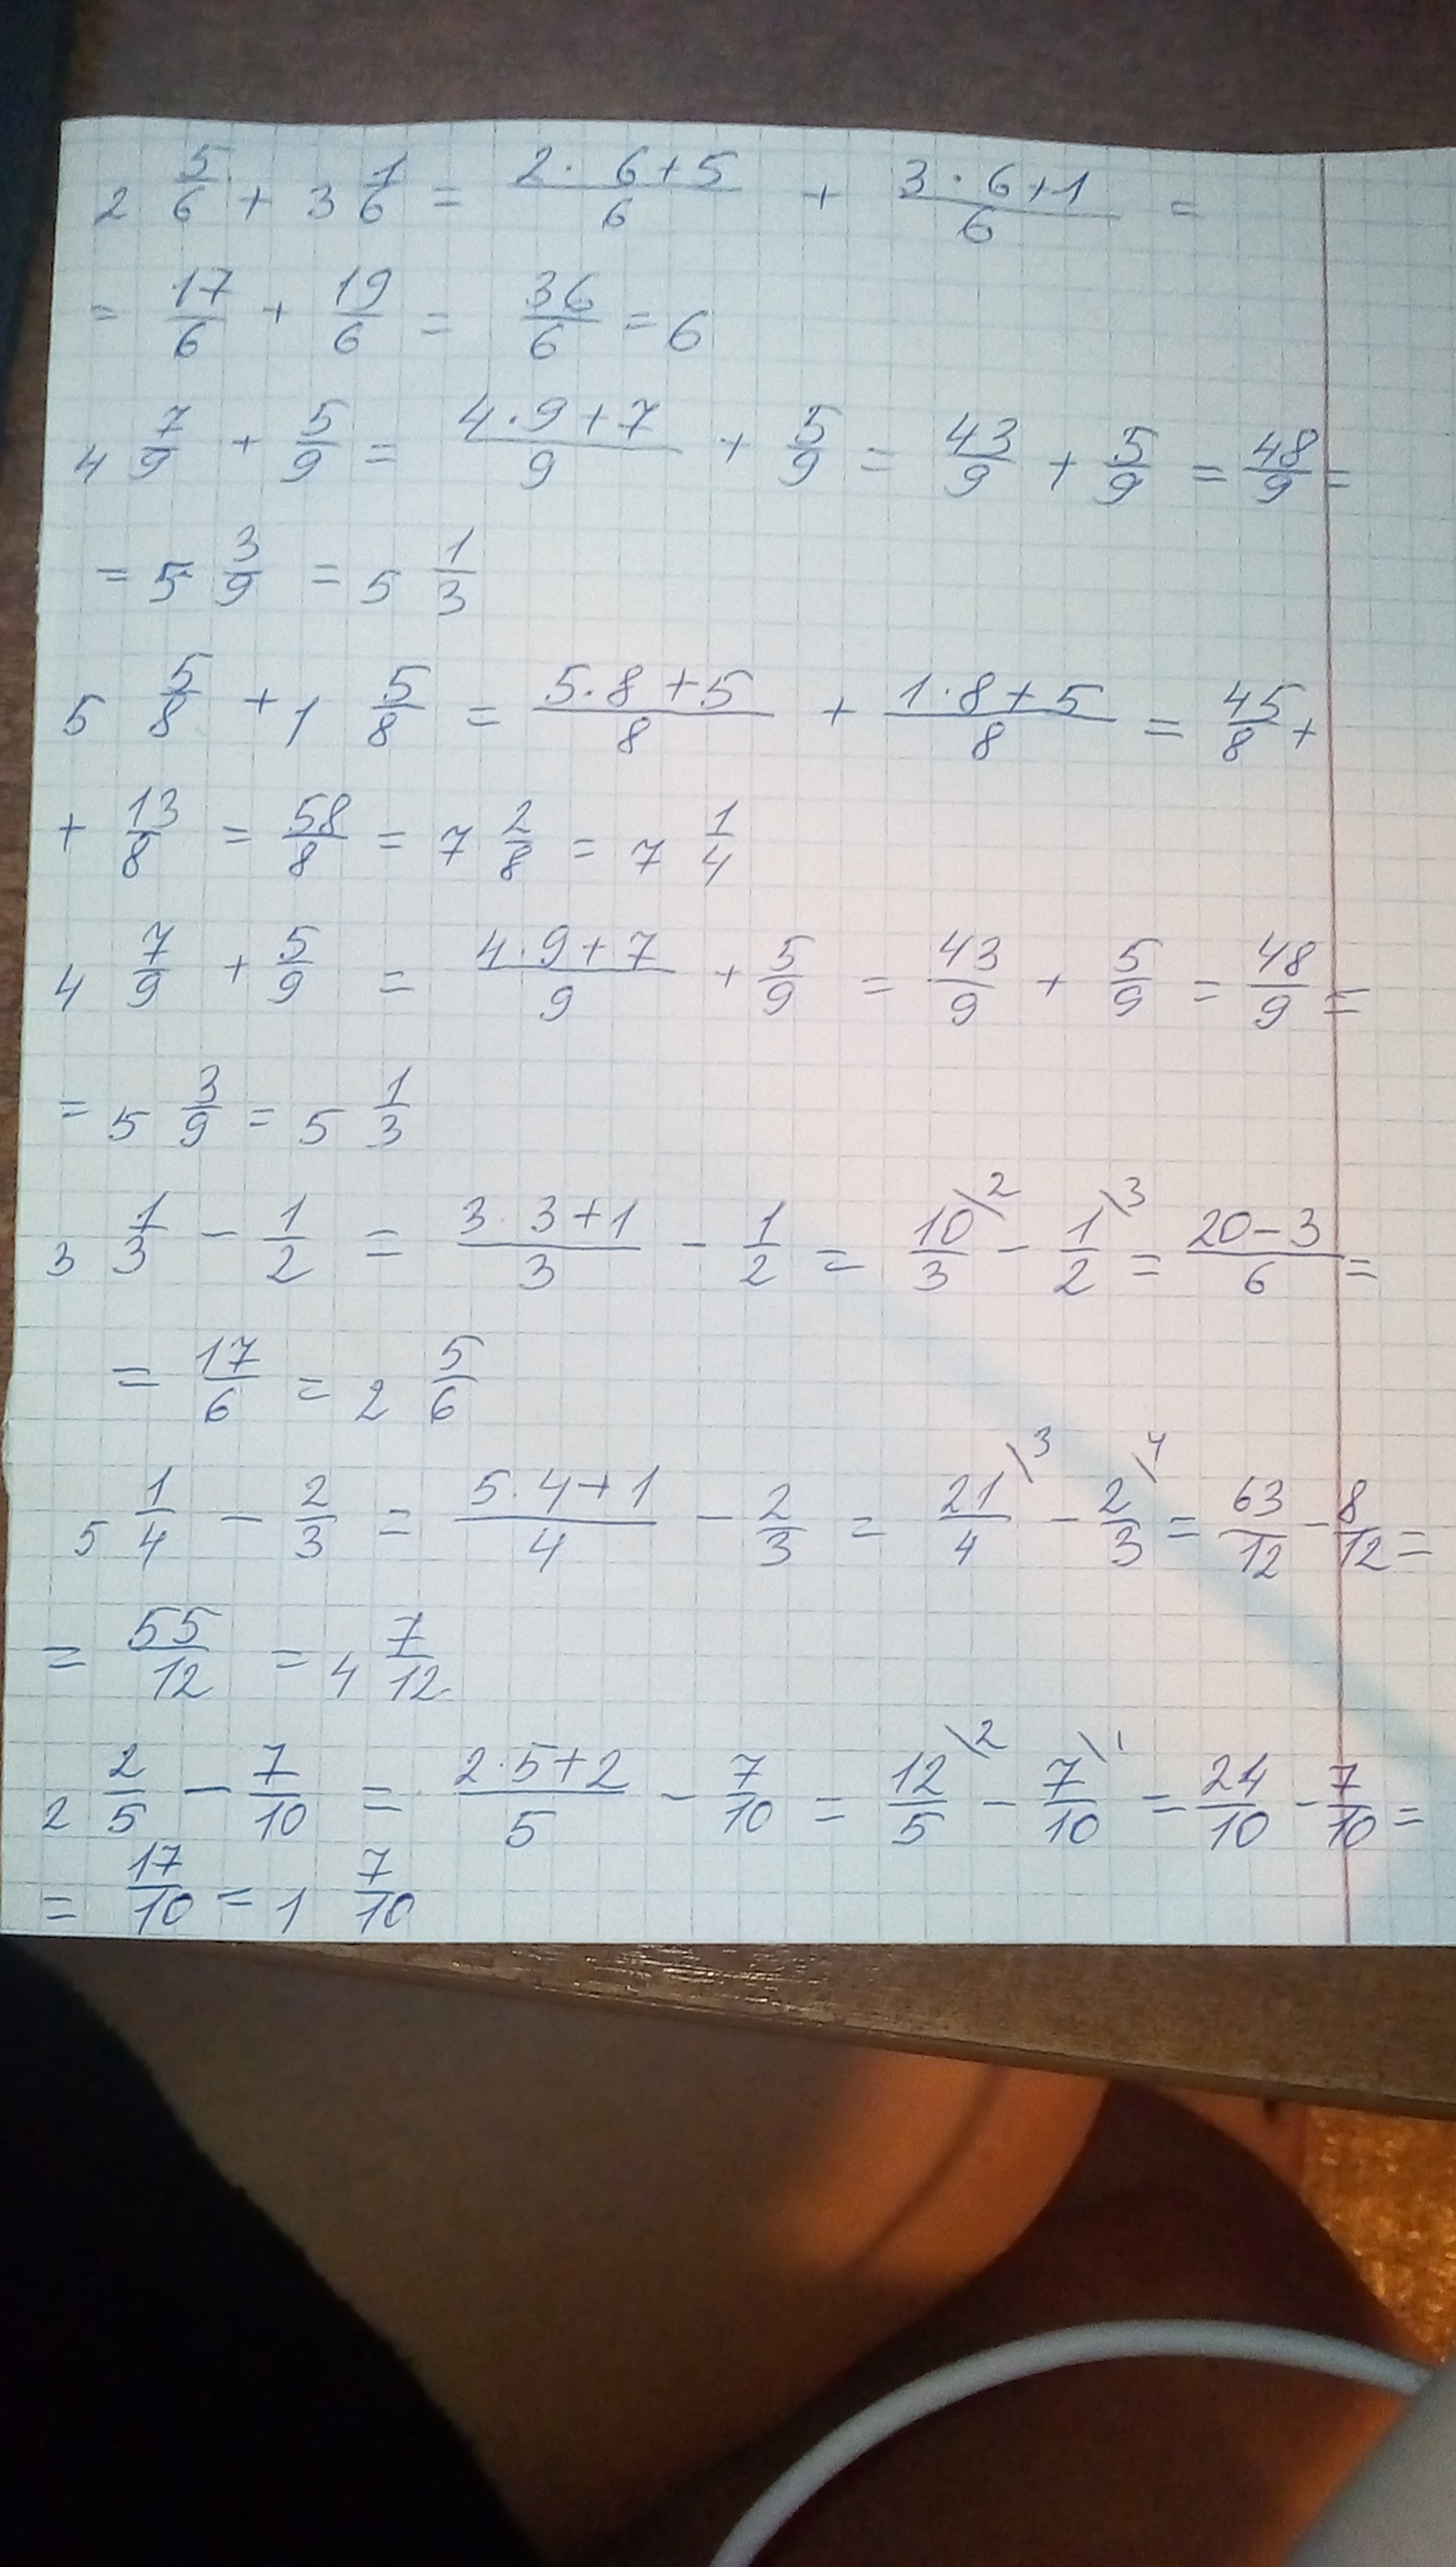 2 5/6 + 3 1/6 = (2 · 6 + 5)/6 + (3 · 6 + 1)/6 =
= 17/6 + 19/6 = 36/6 = 6
4 7/9 + 5/9 = (4 · 9 + 7)/9 + 5/9 = 43/9 + 5/9 = 48/9 =
= 5 3/9 = 5 1/3
5 5/8 + 1 5/8 = (5 · 8 + 5)/8 + (1 · 8 + 5)/8 = 45/8 +
+ 13/8 = 58/8 = 7 2/8 = 7 1/4
4 7/9 + 5/9 = (4 · 9 + 7)/9 + 5/9 = 43/9 + 5/9 = 48/9 =
= 5 3/9 = 5 1/3
3 1/3 − 1/2 = (3 · 3 + 1)/3 − 1/2 = 10\2/3 − 1\3/2 = (20 − 3)/6 =
= 17/6 = 2 5/6
5 1/4 − 2/3 = (5 · 4 + 1)/4 − 2/3 = 21\3/4 − 2\4/3 = 63/12 − 8/12 =
= 55/12 = 4 7/12
2 2/5 − 7/10 = (2 · 5 + 2)/5 − 7/10 = 12\2/5 − 7\1/10 = 24/10 − 7/10 =
= 17/10 = 1 7/10